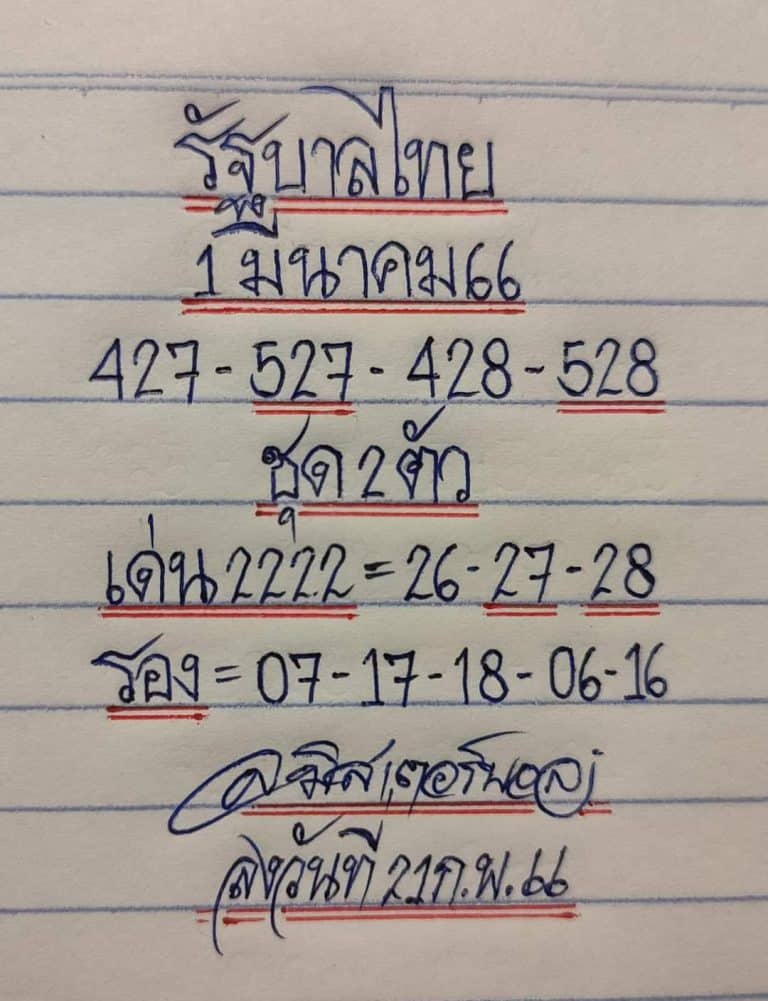 รัฐบาลไทย
1 มีนาคม 66
427 - 527 - 428 - 528
ชุด 2 ตัว
เด่น 2222 = 26 - 27 - 28
รอง = 07 - 17 - 18 - 06 - 16
มิสเตอร์พอล
ลงวันที่ 21 ก.พ. 66